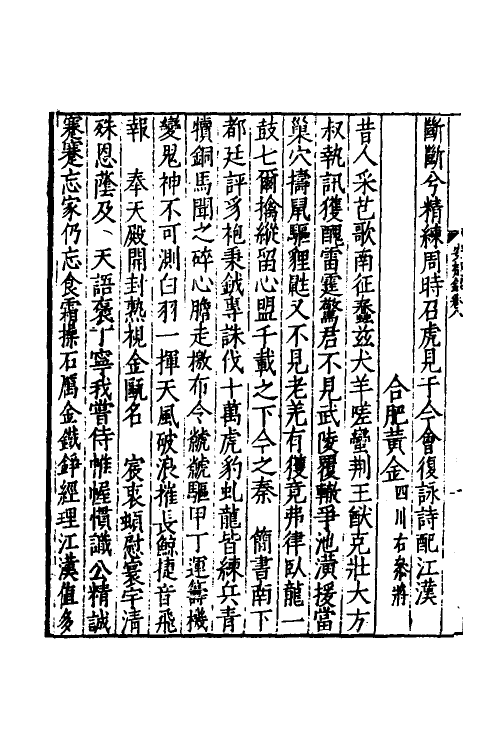 斷斷兮精練周時召虎見于今會復詠詩配江漢
合肥黃金四川右參將
昔人采芑歌南征蠢茲犬羊嗟蠻荆王猷克壯大方
叔執訊獲醜雷霆驚君不見武陵覆轍爭池潢援當
巢穴擣鼠驅狸鼪又不見老羌有獲竟弗律臥龍一
鼓七爾擒縱留心盟千載之下今之秦　簡書南下
都廷評豸袍秉鉞專誅伐十萬虎豹虬龍皆練兵青
犢銅馬聞之碎心膽走檄布令虩虩驅甲丁運籌機
變鬼神不可測白羽一揮天風破浪摧長鯨捷音飛
報　奉天殿開封熟視金甌名　宸衷頓慰寰宇清
殊恩蔭及　天語褒丁寧我嘗侍帷幄慣識公精誠
蹇蹇忘家仍忘食霜操石厲金鐵錚經理江漢值多